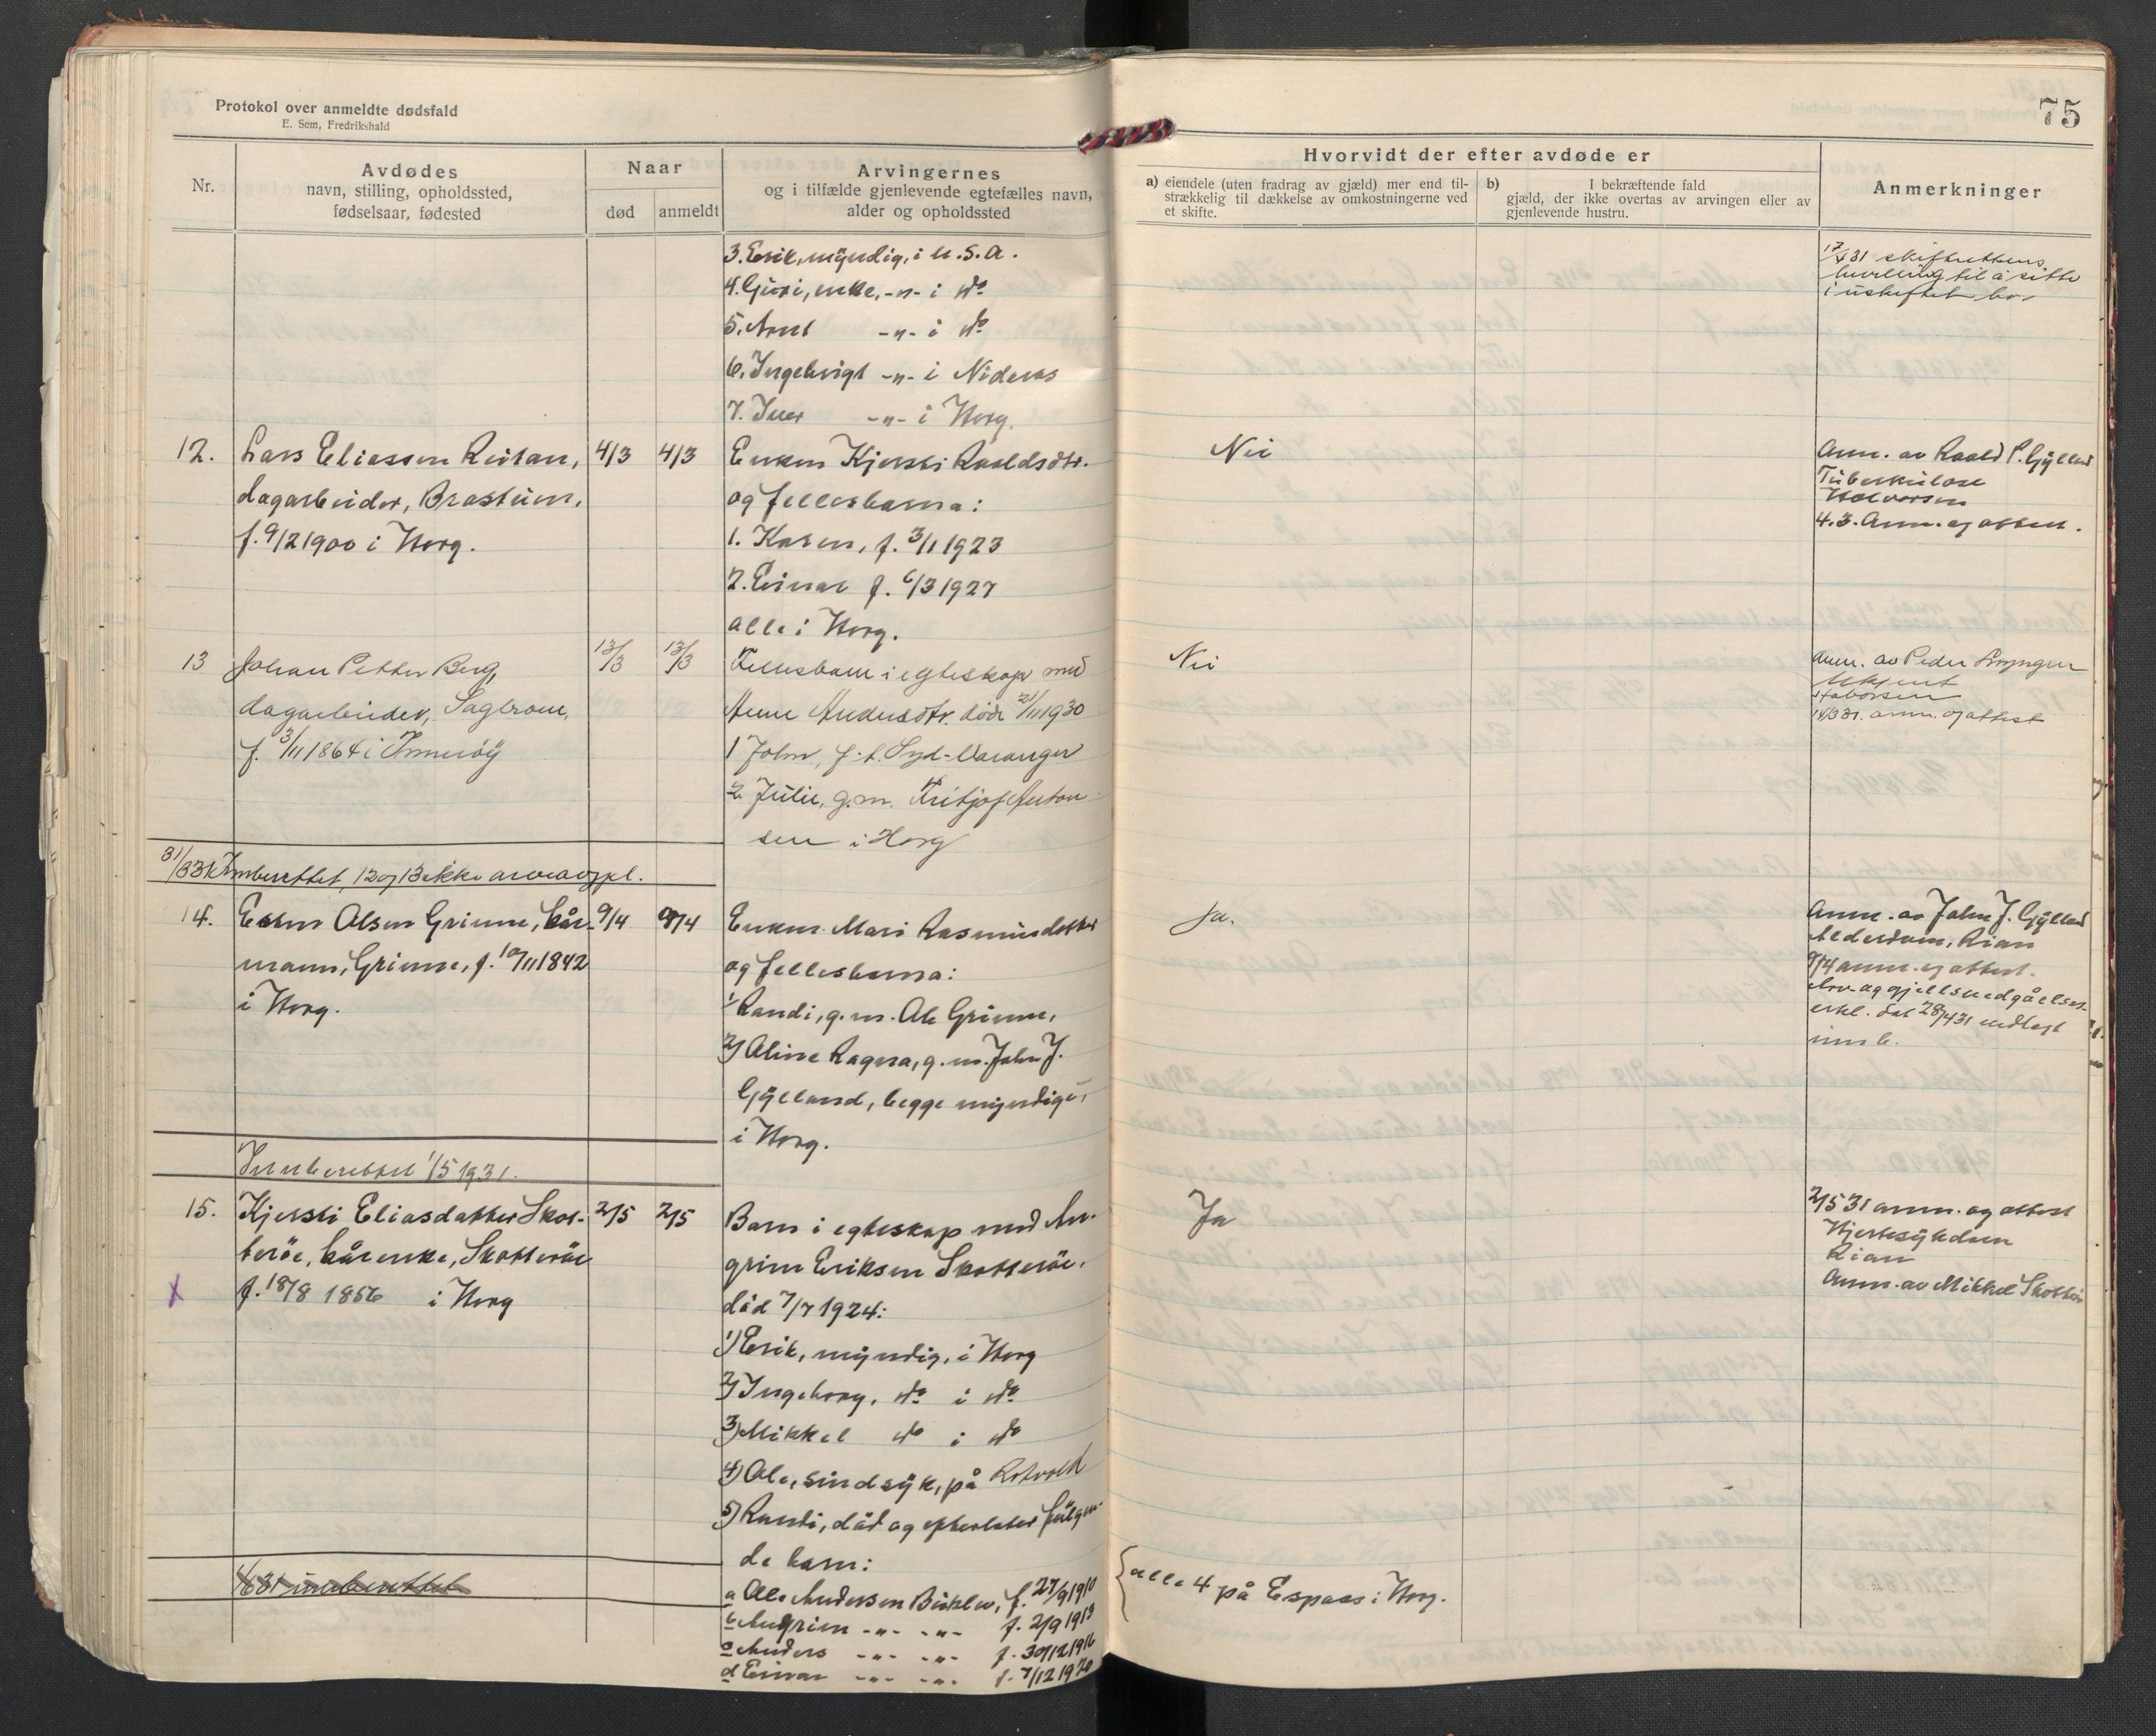 Protokol over anmeldte dødsfald
E. Sem, Fredrikshald
Nr.
Avdødes
navn, stilling, opholdssted,
fødselsaar, fødested
Naar
død
anmeldt
Arvingernes
og i tilfælde gjenlevende egtefælles navn,
alder og opholdssted
3. Erik, myndig, i U.S.A.
4. Guri, enke, -"- i do
5. Arnt -"- i do
6. Ingebrigt -"- i Nidaros
7. Iver -"- i Horg.
12.
Lars Eliassen Reitan,
dagarbeider, Brastuen,
f. 9/2 1900 i Horg.
4/3
4/3
Enken Kjersti Roaldsdtr.
og fellesbarna:
1. Karen, f. 3/1 1923
2. Einar f. 6/3 1927
alle i Horg.
13
Johan Petter Berg,
dagarbeider, Sagbroen,
f. 3/11 1864 i Inderöy
13/3
13/3
Fellesbarn i egteskap med
Anne Andersdtr. död 21/11 1930
1 John, f.t. Syd-Varanger
2. Julie, g.m. Fritjof Anton-
sen i Horg
31/3 31 Innberettet, 12 og 13 ikke arveavgpl.
14.
Esten Olsen Grinne, kår-
mann, Grinne, f. 10/11 1842
i Horg.
9/4
9/4
Enken Mari Rasmusdatter
og fellesbarna:
1/ Randi, g.m. Ole Grinne,
2) Oline Ragna, g.m. John J.
Gylland, begge myndige,
i Horg.
Innberettet 1/5 1931.
15.
Kjersti Eliasdatter Skot-
teröe, kårenke, Skotteröe
f. 18/8 1856 i Horg
X
2/5
2/5
Barn i egteskap med An-
grim Eriksen Skotteröe,
död 7/7 1924:
1) Erik, myndig, i Horg
2) Ingeborg, do i do
3) Mikkel do i do
4) Ole, sindsyk, på Rotvold
5) Randi, död og efterlater fulgen-
de barn:
a Ole Andersen f. 27/9 1910
b Angrim -"- -"- f. 2/9 1913
c Anders -"- -"- f. 30/12 1916
d Einar -"- -"- f. 7/12 1920
1/6 31 innberettet
75
Hvorvidt der efter avdøde er
a) eiendele (uten fradrag av gjæld) mer end til-
strækkelig til dækkelse av omkostningerne ved
et skifte.
b) I bekræftende fald
gjæld, der ikke overtas av arvingen eller av
gjenlevende hustru.
Anmerkninger
17/4 31 skifterettens
bevilling til å sitte
i uskiftet bo.
Nei
Anm. av Roald P. Gylland
Tuberkulose
Halvorsen
4.3. Anm. og attest.
Nei
Anm. av Peder
Ukjent
14/3 31. anm. og attest
Ja.
Anm. av John J. Gylland
Alderdom, Rian
9/4 anm. og attest.
Arv- og gjeldsvedgåelses-
erkl. dat 28/4 31 vedlagt
innb.
Ja
2/5 31 anm. og attest
Hjertesykdom
Rian
Anm. av Mikkel Skotteröe
alle 4 på Espaas i Horg.